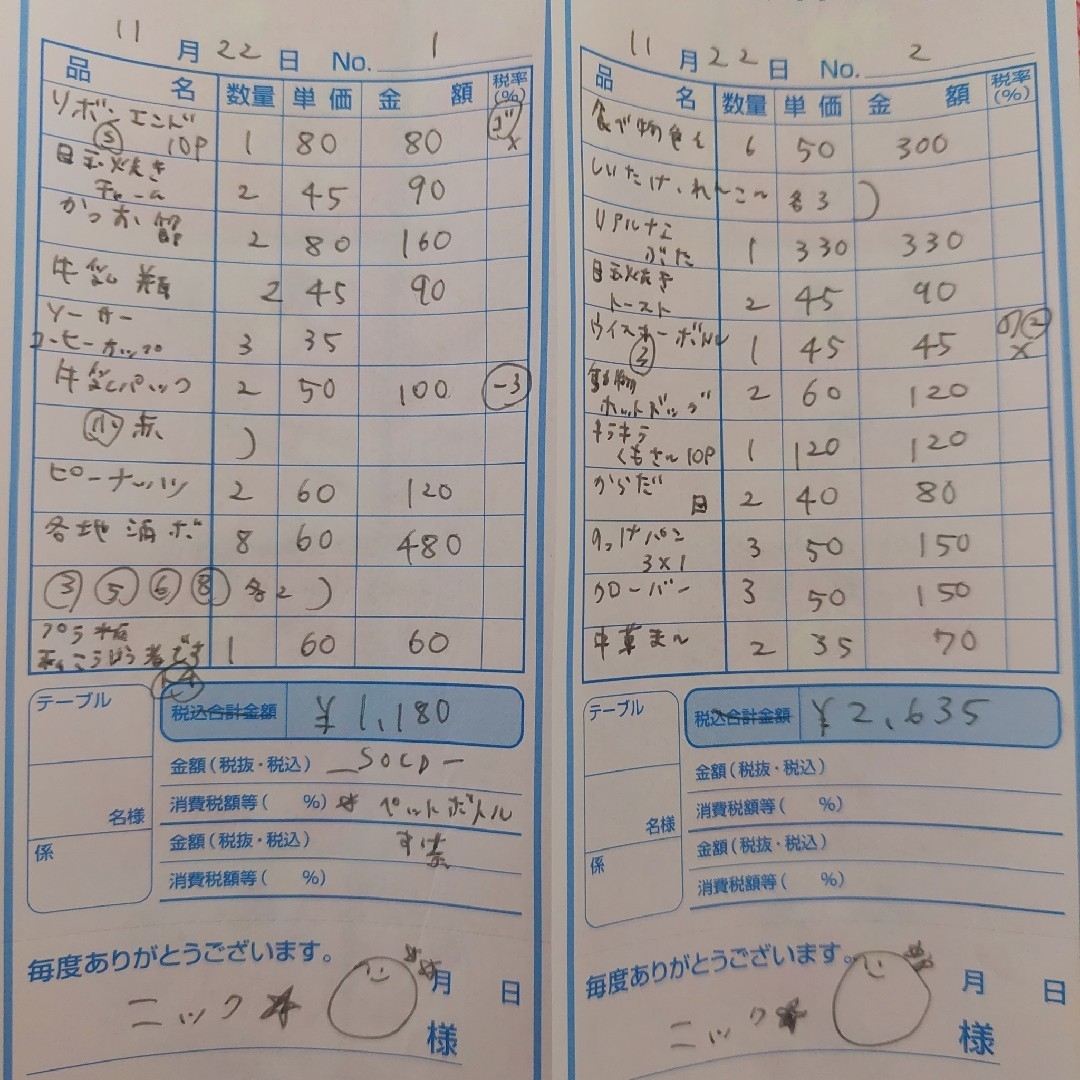 11 月 22 日 No. 1
品 名 数量 単価 金 額 税率(%)
リボンエンド
⑤ 10P 1 80 80
目玉焼き
チャーム 2 45 90
かつお節 2 80 160
牛乳瓶 2 45 90
ソーサー
コーヒーカップ 3 35
牛乳パック 2 50 100 -3
赤 )
ピーナッツ 2 60 120
各地酒ボ 8 60 480
③ ⑤ ⑥ ⑧ 各2 )
プラ 1 60 60
テーブル
名様
係
税込合計金額 ¥1,180
金額(税抜・税込)
消費税額等( %) ペットボトル
金額(税抜・税込)
消費税額等( %)
毎度ありがとうございます。
月 日
ニック 様
11 月 22 日 No. 2
品 名 数量 単価 金 額 税率(%)
食べ物色々 6 50 300
しいたけ、れんこん 各3 )
リアルナミ
ぶた 1 330 330
目玉焼き
トースト 2 45 90
ウイスキーボトル
③ 1 45 45
動物
ホットドッグ 2 60 120
キラキラ
くまさん 10P 1 120 120
からだ 2 40 80
コッペパン
3×1 3 50 150
クローバー 3 50 150
中華まん 2 35 70
テーブル
名様
係
税込合計金額 ¥2,635
金額(税抜・税込)
消費税額等( %)
金額(税抜・税込)
消費税額等( %)
毎度ありがとうございます。
月 日
ニック 様